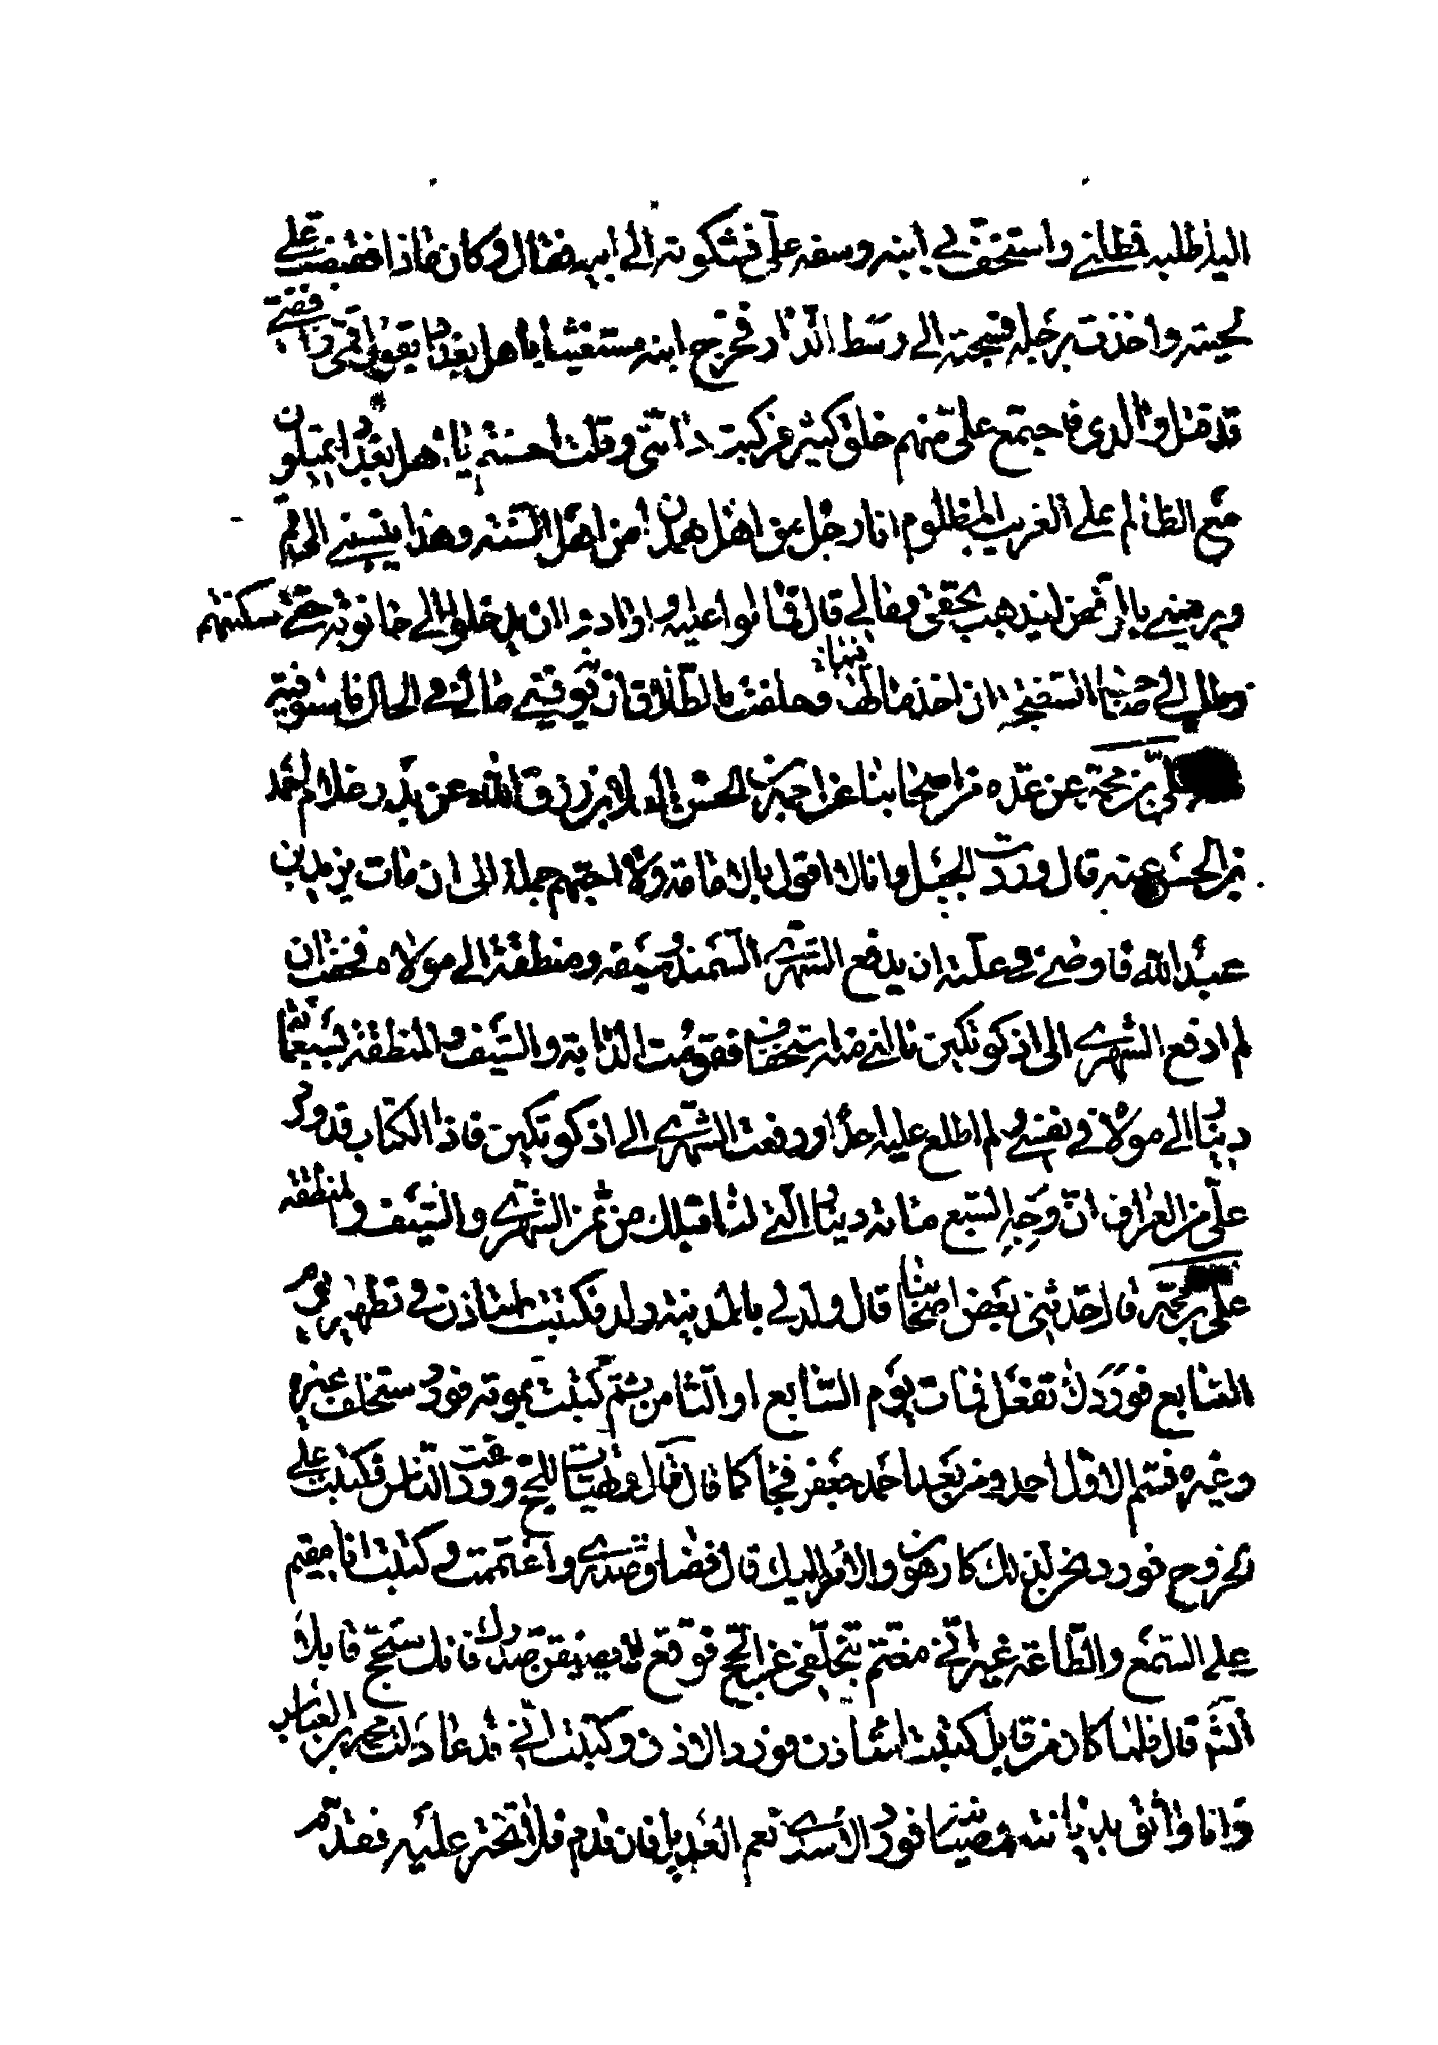 اليه اطلبه فطلني واستخف بي ابنه وسفه علي فشكوته الى ابيه فقال وكان ماذا فقبضت على
لحيته واخذت برجله فسحبته الى وسط الدار فخرج ابنه مستغيثا باهل بغداد يقول قمي رافضي
قد قتل والدي فاجتمع علي منهم خلق كثير فركبت دابتي وقلت احسنتم يا اهل بغداد تميلون
مع الظالم على الغريب المظلوم انا رجل من اهل همدان من اهل السنة وهذا ينسبني الى قم
ويرميني بالرفض ليذهب بحقي ومالي قال فمالوا عليه وارادوا ان يدخلوا الى حانوته حتى سكنتهم
وطلب الي صاحب السفتجة ان اخذ مالها وحلف بالطلاق ان يوفيني مالي في الحال فاستوفيته منه
علي بن محمد عن عدة من اصحابنا عن احمد بن الحسن والعلا بن رزق الله عن بدر غلام احمد
بن الحسن عنه قال وردت الجبل وانا لا اقول بالامامة ولا احبهم جملة الى ان مات يزيد بن
عبد الله فاوصى في علته ان يدفع الشهري السمند وسيفه ومنطقته الى مولاه فخفت ان
لم ادفع الشهري الى اذكوتكين نالني منه استخفاف فقومت الدابة والسيف والمنطقة بسبعمائة
دينار الى مولاه في نفسي ولم اطلع عليه احدا ودفعت الشهري الى اذكوتكين فاذا الكتاب قد ورد
علي من العراق ان وجه السبع مائة دينار التي لنا قبلك من ثمن الشهري والسيف والمنطقة
علي بن محمد قال حدثني بعض اصحابنا قال ولد لي بالمدينة ولد فكتبت استاذن في تطهيره يوم
السابع فورد لا تفعل فمات يوم السابع او الثامن ثم كتبت بموته فورد ستخلف غيره
وغيره فسم الاول احمد ومن بعد احمد جعفر فجاء كما قال قال وتهيات للحج وودعت الناس فكتبت على
الخروج فورد نحن لذلك كارهون والامر اليك قال فضاق صدري واغتممت وكتبت انا مقيم
على السمع والطاعة غير اني مغتم بتخلفي عن الحج فوقع لا يضيقن صدرك فانك ستحج قابلا
انشا الله قال فلما كان من قابل كتبت استاذن فورد الاذن وكتبت اني قد عادلت محمد بن العباس
وانا واثق بديانته وصيانته فورد الاسدي نعم العديل فان قدم فلا تختر عليه فقدم